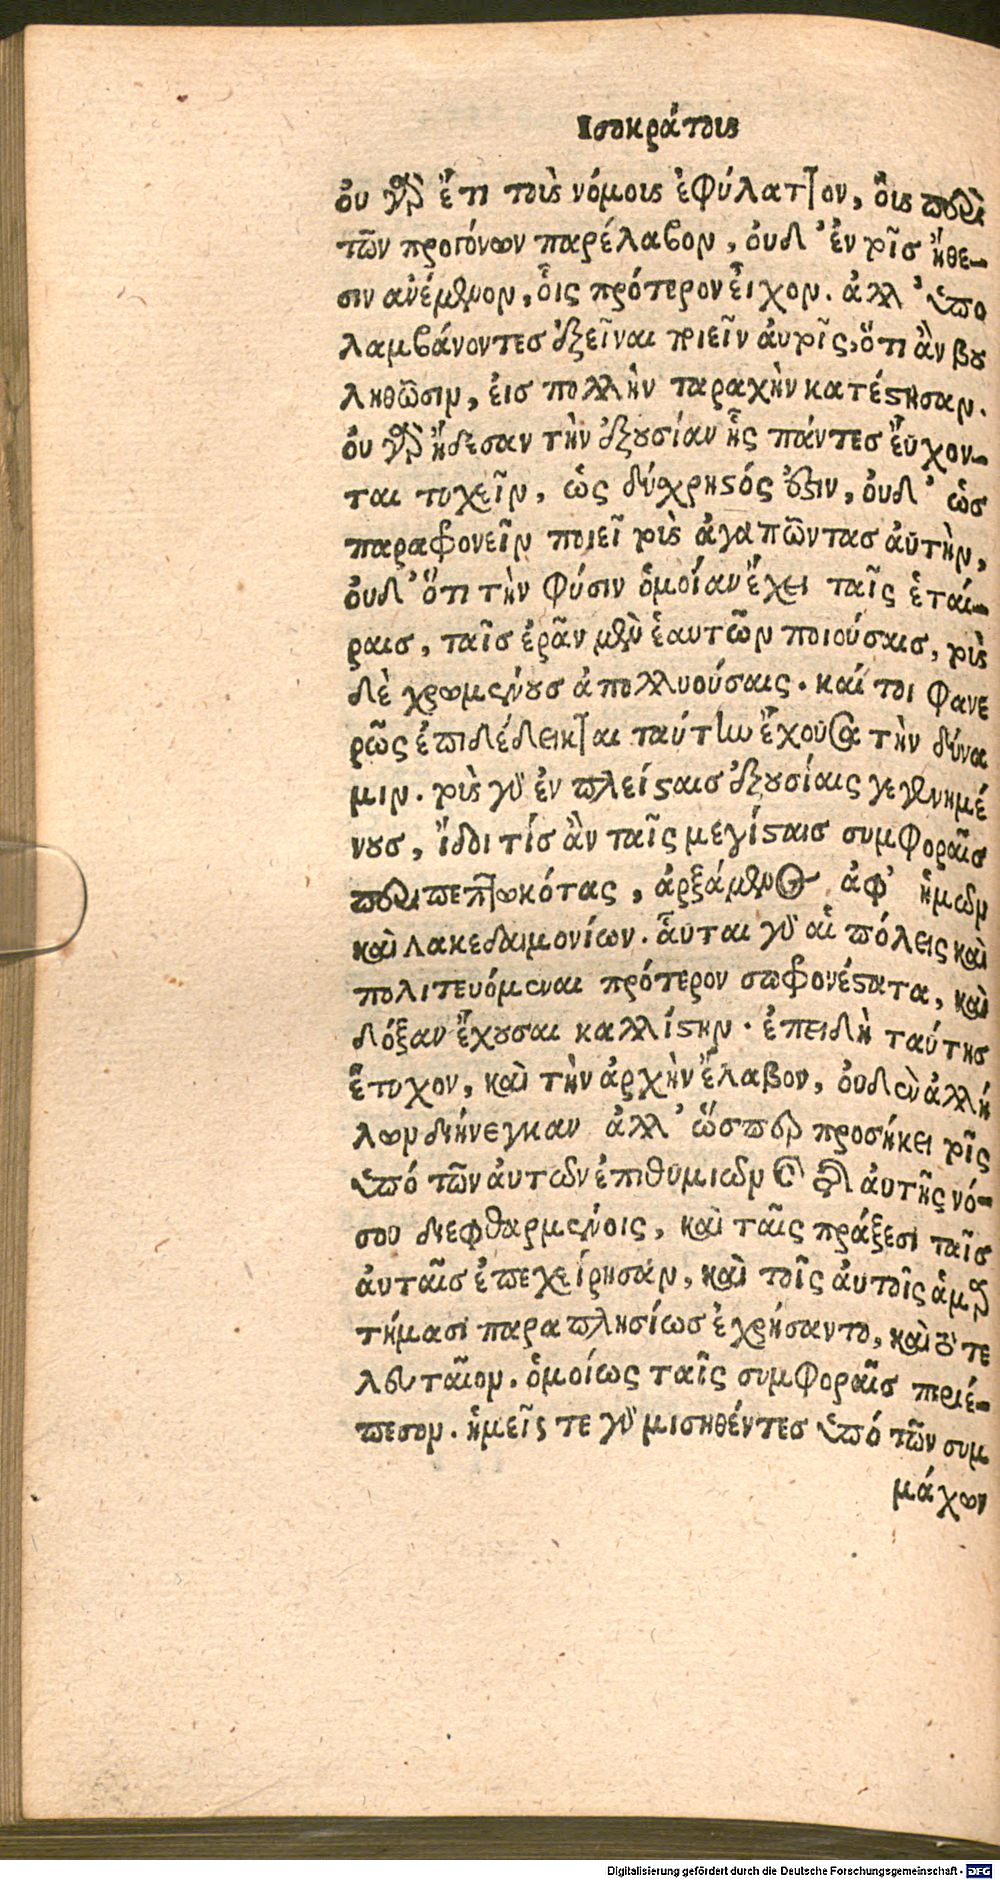 Ισοκράτους
ὀυ γὰρ ἔτι τοὶς νόμοις ἐφύλαττον, ὃις παρὰ
τῶν προγόνων παρέλαβον, ὀυδ' ἐν τοῖσ ἤθε-
σιν ἀνέμενον, ὃις πρότερον εἶχον. ἀλλ' ὑπο
λαμβάνοντεσ ἐξεῖναι ποιεῖν ἀυτοῖς, ὅτι ἂν βου
ληθῶσιν, ἐισ πολλὴν ταραχὴν κατέστησαν.
ὀυ γὰρ ἤδεσαν τὴν ἐξουσίαν ἧς πάντεσ εὔχον-
ται τυχεῖν, ὡς δύχρηστός ἐστιν, ὀυδ' ὡσ
παραφρονεῖν ποιεῖ τοὺς ἀγαπῶντασ ἀυτὴν,
ὀυδ' ὅτι τὴν φύσιν ὁμοίαν ἔχει ταῖς ἑταί-
ραισ, ταῖσ ἐρᾶν μὲν ἑαυτῶν ποιούσαισ, τοὺς
δὲ χρωμένουσ ἀπολλυούσαις. καί τοι φανε
ρῶς ἐπιδέδεικται ταύτην ἔχουσα τὴν δύνα
μιν. τοὺς γὰρ ἐν πλείσταισ ἐξουσίαις γεγενημέ
νουσ, ἴδοι τίσ ἂν ταῖς μεγίσταισ συμφοραῖσ
περιπεπτωκότας, ἀρξάμενος ἀφ' ἡμῶν
καὶ λακεδαιμονίων. ἇυται γὰρ αἱ πόλεις καὶ
πολιτευόμεναι πρότερον σωφρονέστατα, καὶ
δόξαν ἔχουσαι καλλίστην. ἐπειδὴ ταύτησ
ἔτυχον, καὶ τὴν ἀρχὴν ἔλαβον, ὀυδὲν ἀλλή
λων διήνεγκαν ἀλλ' ὥσπερ προσήκει τοῖς
ὑπό τῶν ἀυτῶν ἐπιθυμιῶν καὶ τῆς ἀυτῆς νό-
σου διεφθαρμένοις, καὶ ταῖς πράξεσι ταῖσ
ἀυταῖσ ἐπεχείρησαν, καὶ τοῖς ἀυτοῖς ἁμαρ
τήμασι παραπλησίωσ ἐχρήσαντο, καὶ τὸ τε
λευταῖον. ὁμοίως ταῖς συμφοραῖσ περιέ-
πεσον. ἡμεῖς τε γὰρ μισηθέντεσ ὑπό τῶν συμ
μάχων
Digitalisierung gefördert durch die Deutsche Forschungsgemeinschaft - DFG